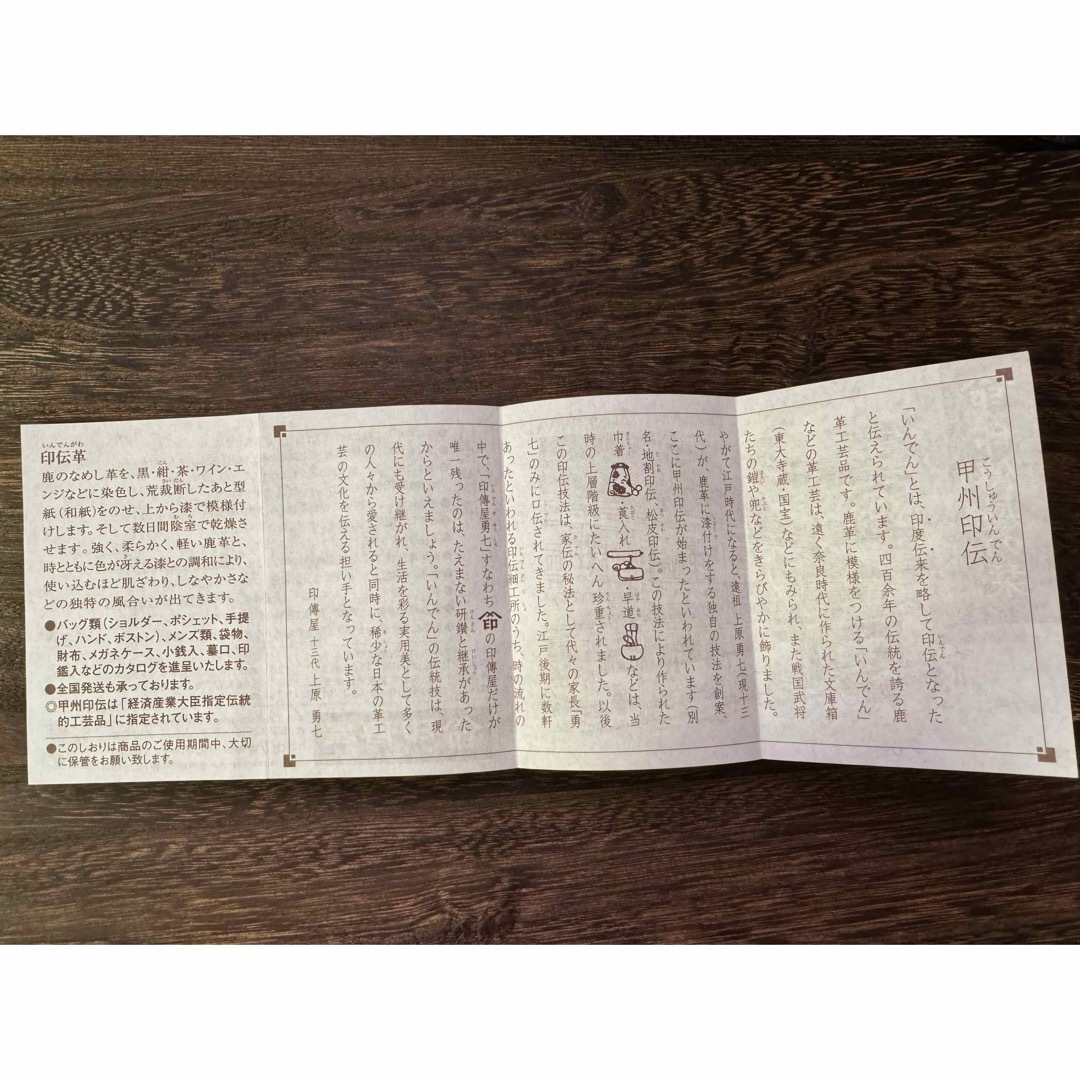 甲州印伝
こうしゅういんでん
「いんでん」とは、印度伝来を略して印伝となった
と伝えられています。四百余年の伝統を誇る鹿
革工芸品です。鹿革に模様をつける「いんでん」
などの革工芸は、遠く奈良時代に作られた文庫箱
(東大寺蔵・国宝)などにもみられ、また戦国武将
たちの鎧や兜などをきらびやかに飾りました。
やがて江戸時代になると、遠祖 上原勇七(現十三
代)が、鹿革に漆付けをする独自の技法を創案、
ここに甲州印伝が始まったといわれています(別
名・地割印伝 松皮印伝)。この技法により作られた
巾着・莨入れ・早道などは、当
時の上層階級にたいへん珍重されました。以後
この印伝技法は、家伝の秘法として代々の家長「勇
七」のみに口伝されてきました。江戸後期に数軒
あったといわれる印伝細工所のうち、時の流れの
中で、「印傳屋勇七」すなわち印の印傳屋だけが
唯一残ったのは、たえまない研鑽と継承があった
からといえましょう。「いんでん」の伝統技は、現
代にも受け継がれ、生活を彩る実用美として多く
の人々から愛されると同時に、稀少な日本の革工
芸の文化を伝える担い手となっています。
印傳屋 十三代 上原 勇七
いんでんがわ
印伝革
鹿のなめし革を、黒・紺・茶・ワイン・エ
ンジなどに染色し、荒裁断したあと型
紙(和紙)をのせ、上から漆で模様付
けします。そして数日間陰室で乾燥さ
せます。強く、柔らかく、軽い鹿革と、
時とともに色が冴える漆との調和により、
使い込むほど肌ざわり、しなやかさな
どの独特の風合いが出てきます。
●バッグ類(ショルダー、ポシェット、手提
げ、ハンド、ボストン)、メンズ類、袋物、
財布、メガネケース、小銭入、蟇口、印
鑑入などのカタログを進呈いたします。
●全国発送も承っております。
◎甲州印伝は「経済産業大臣指定伝統
的工芸品」に指定されています。
●このしおりは商品のご使用期間中、大切
に保管をお願い致します。